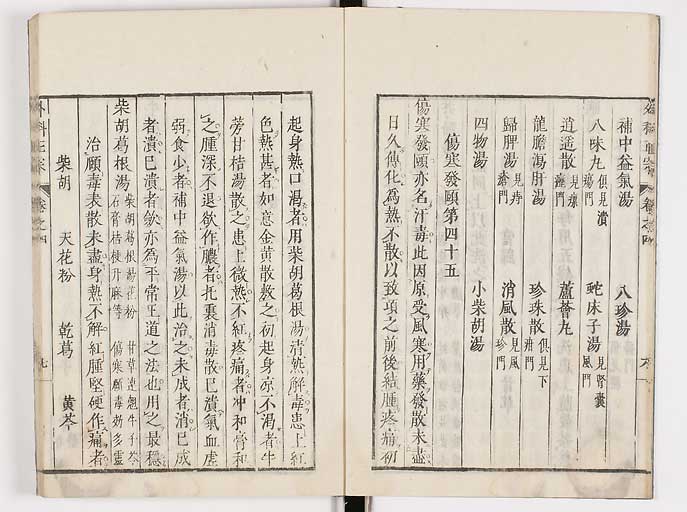 補中益氣湯　八珍湯
八味丸 俱見潰瘍門　蛇床子湯 見腎囊風門
逍遥散 見瘰癧門　蘆薈丸
龍膽瀉肝湯　珍珠散 俱見下疳門
歸脾湯 見痔瘡門　消風散 見風疹門
四物湯　小柴胡湯
傷寒發頤第四十五
傷寒發頤亦名汗毒此因原受風寒用藥發散未盡
日久傳化爲熱不散以致項之前後結腫疼痛初
起身熱口渴者用柴胡葛根湯清熱解毒患上紅
色熱甚者如意金黃散敷之初起身凉不渴者牛
蒡甘桔湯散之患上微熱不紅疼痛者冲和膏和
之腫深不退欲作膿者托裏消毒散已潰氣血虛
弱食少者補中益氣湯以此治之未成者消已成
者潰已潰者斂亦爲平常正道之法也用之最穩
柴胡葛根湯 柴胡葛根湯花粉 甘草連翹牛子芩
石膏桔梗升麻等 傷寒頤毒妙多靈
治頤毒表散未盡身熱不解紅腫堅硬作痛者
柴胡　天花粉　乾葛　黃芩
外科正宗　卷之四